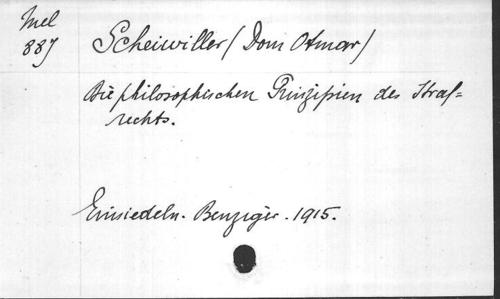 Mel
887
Scheiwiller (Dom Otmar)
Die philosophischen Prinzipien des Straf=
rechts.
Einsiedeln. Benziger. 1915.